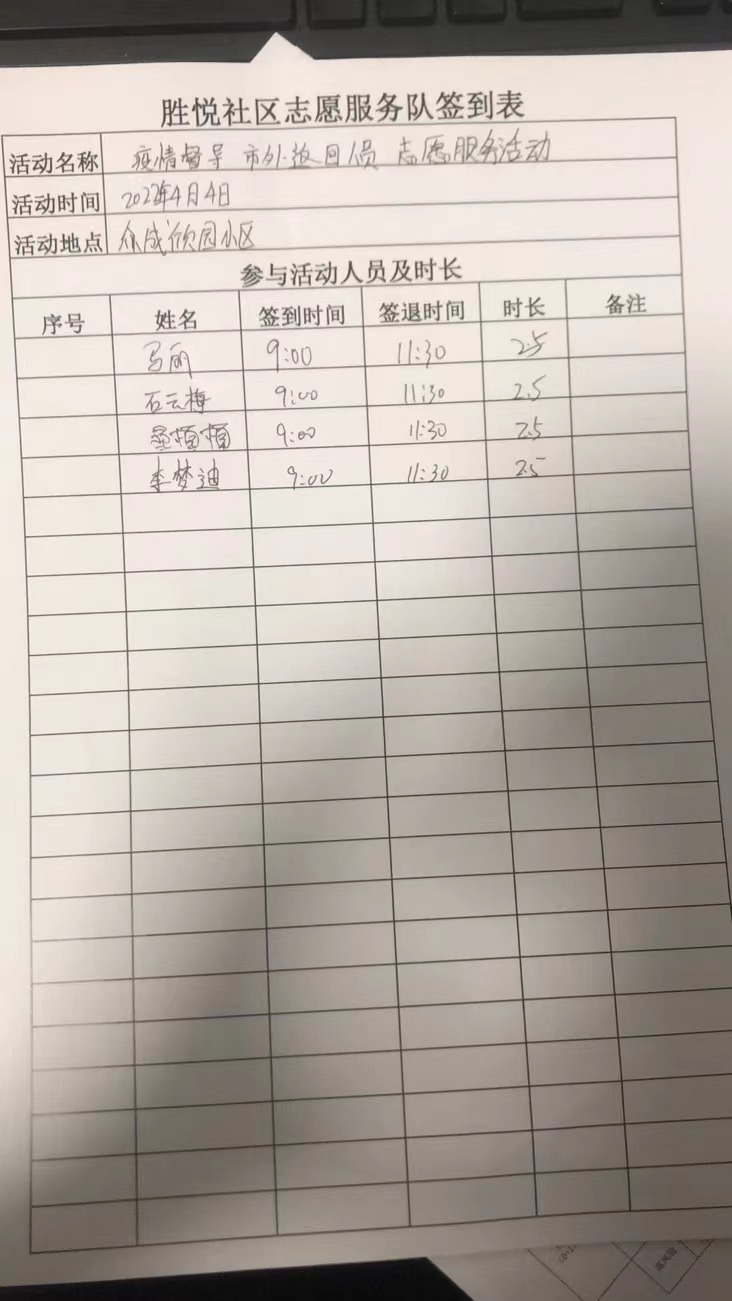 胜悦社区志愿服务队签到表
活动名称 疫情督导 市外返回人员 志愿服务活动
活动时间 2022年4月4日
活动地点 众成欣园小区
参与活动人员及时长
序号 姓名 签到时间 签退时间 时长 备注
马丽 9:00 11:30 2.5
石云梅 9:00 11:30 2.5
9:00 11:30 2.5
李梦迪 9:00 11:30 2.5